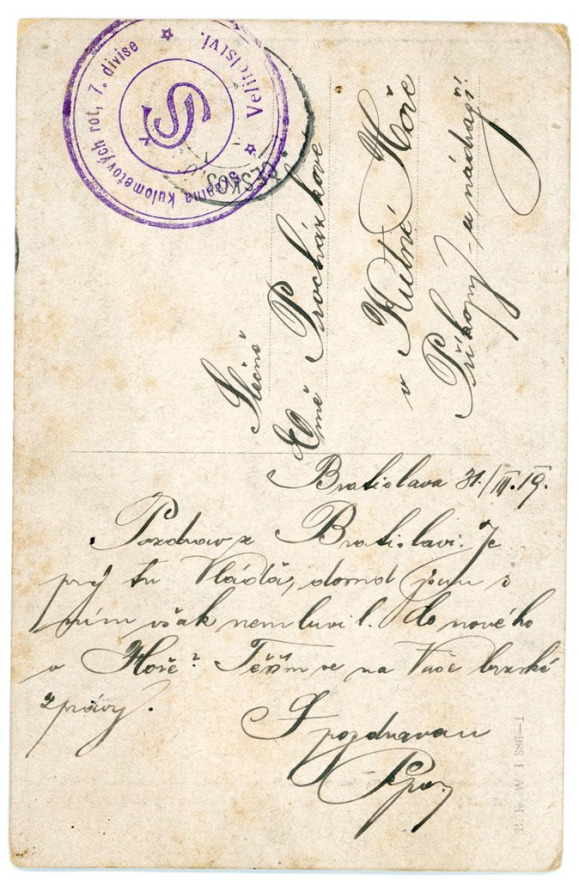 Velitelství.
kulometových rot, 7. divise
Š
Slečně
Emě Procházkové
v Kutné Hoře
Příkopy - u nádraží
Bratislava 31./III.19.
Pozdrav z Bratislavi. Je
prý tu Vláďa, dosud jsem s
ním však nemluvil. Co nového
v Hoře? Těším se na Vaše brzské
zprávy.
S pozdravem
B.K.W.I 886-1